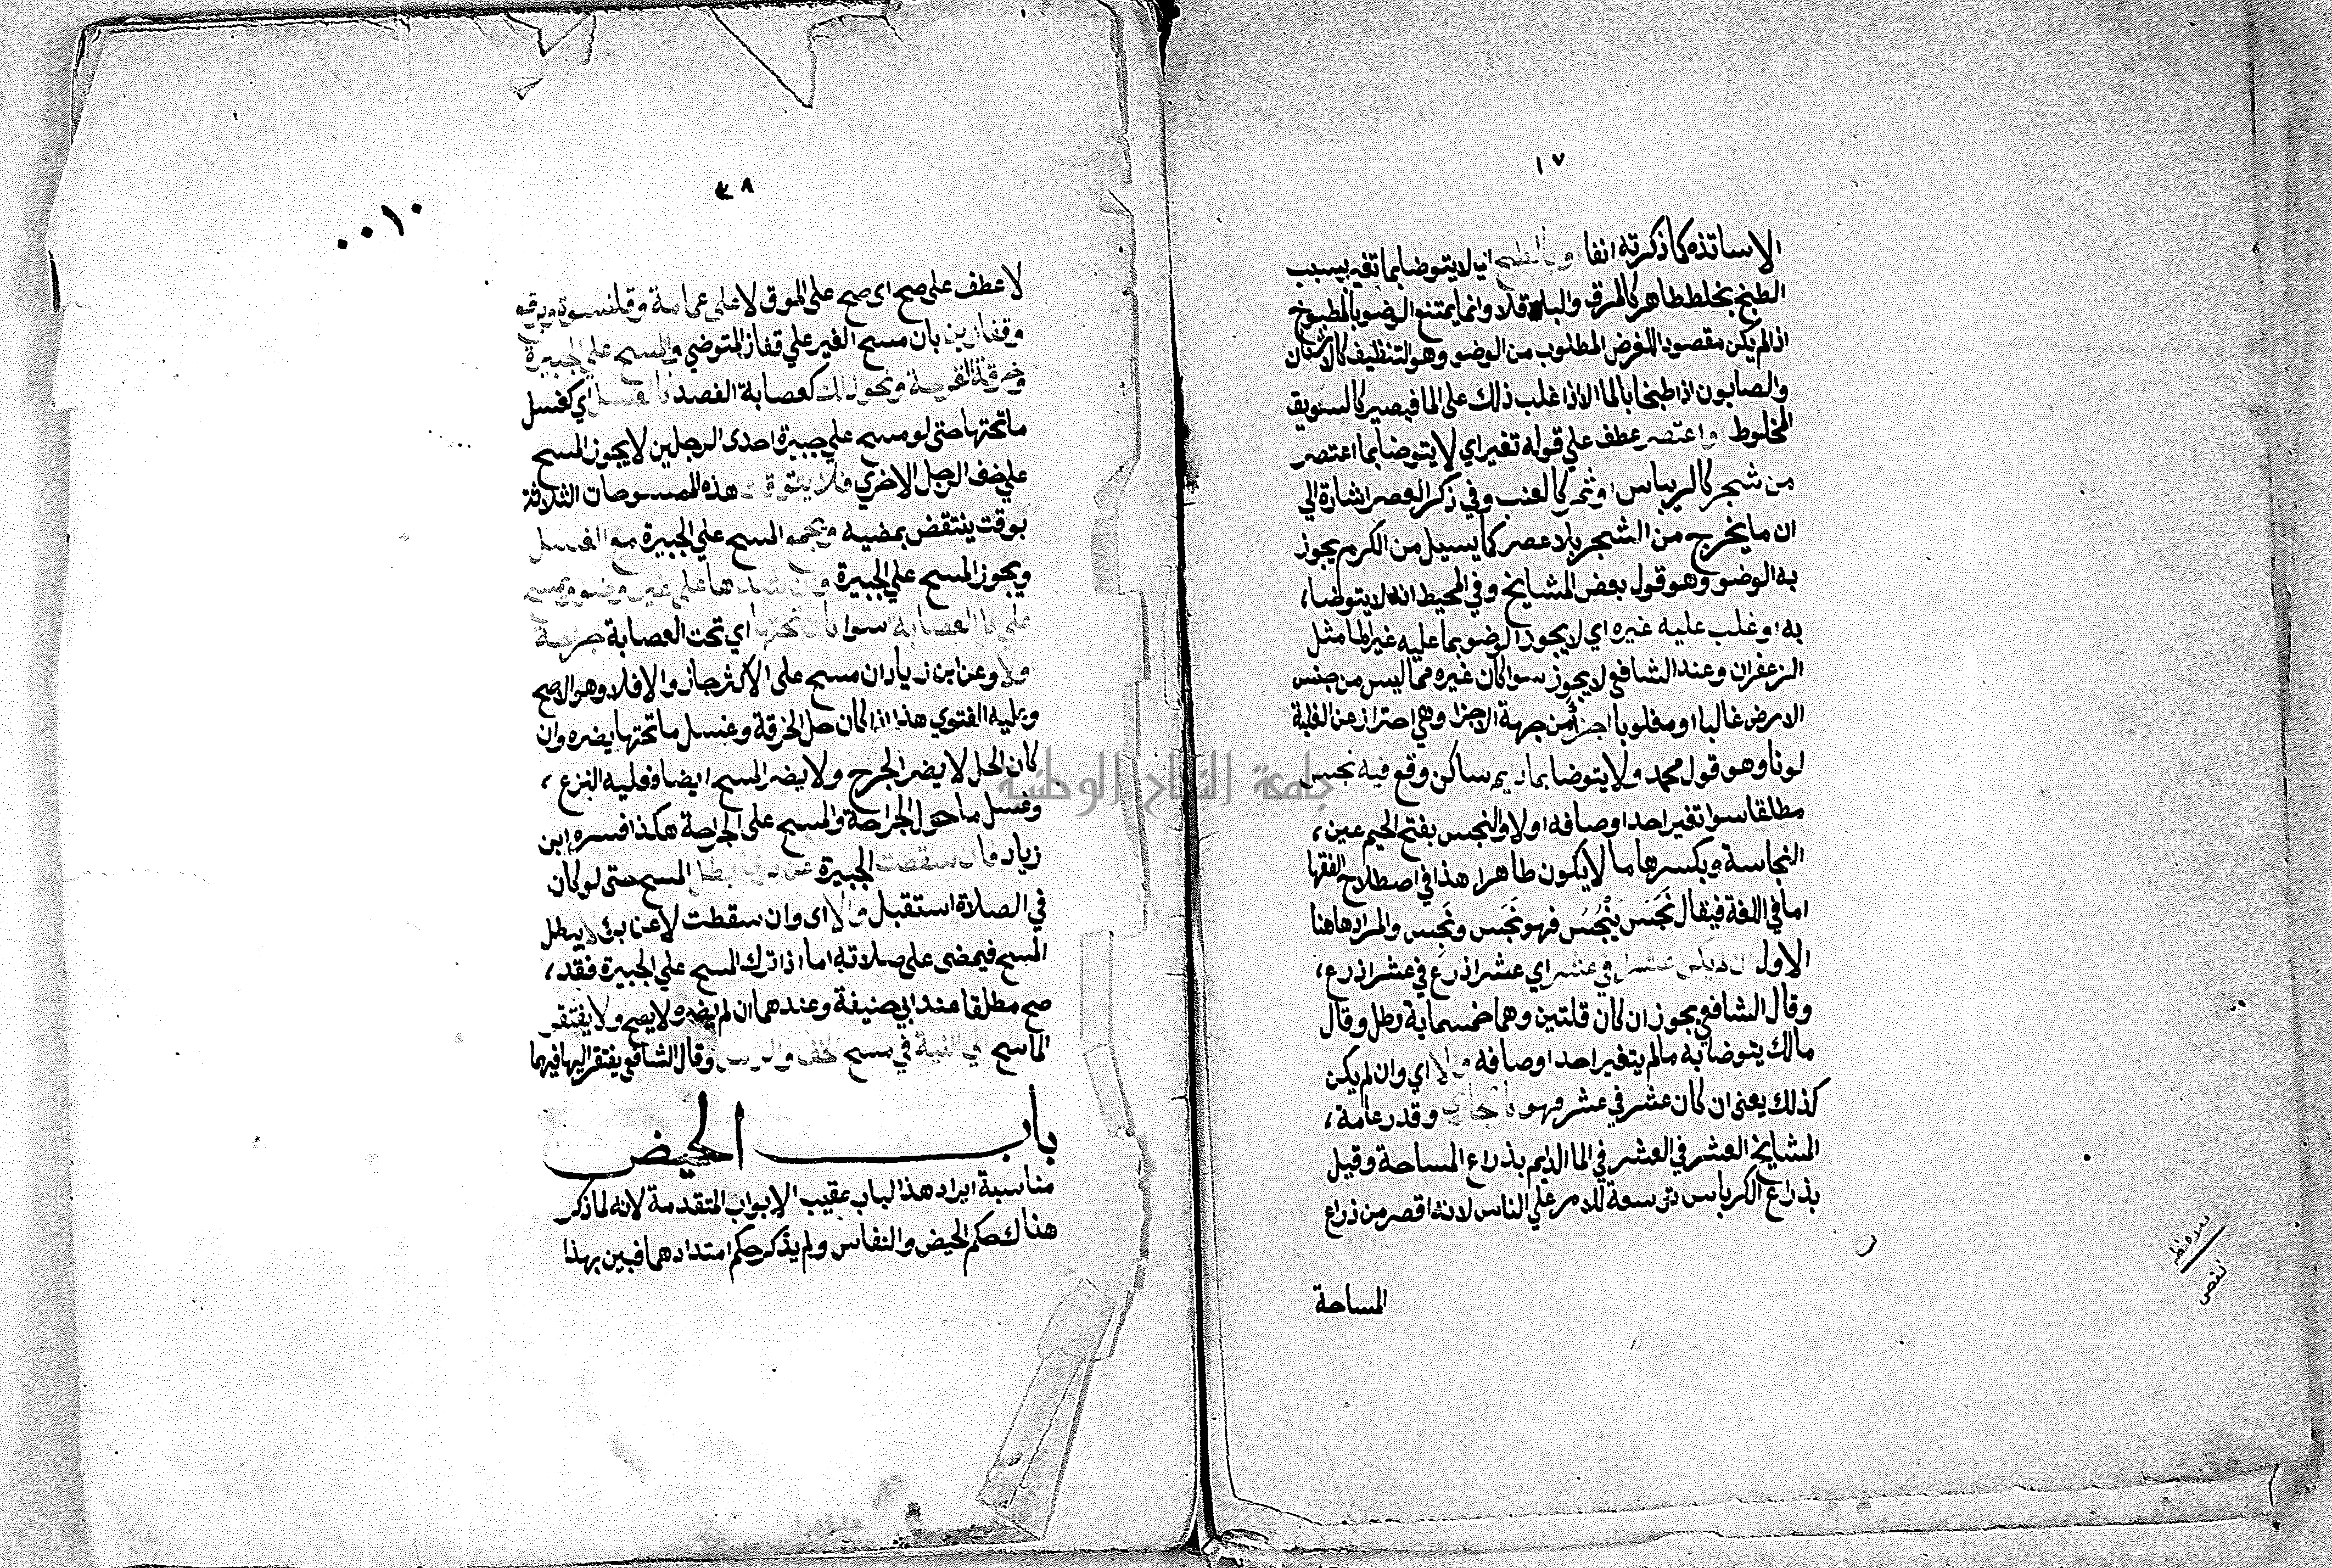 ١٧
الاساتذه كما ذكرته انفا وبالطبخ اي لا يتوضا بما تغير بسبب
الطبخ بخلط طاهر كالمرق والباقلا وانما يمتنع الوضو بالمطبوخ
اذا لم يكن مقصودا للغرض المطلوب من الوضو وهو التنظيف كالاشنان
والصابون اذا طبخا بالما الا اذا غلب ذلك على الما فيصير كالسويق
المخلوط او اعتصر عطف علي قوله تغير اي لا يتوضا بما اعتصر
من شجر كالريباس او ثمر كالعنب وفي ذكر العصر اشارة الي
ان ما يخرج من الشجر بلا عصر كما يسيل من الكرم يجوز
به الوضو وهو قول بعض المشايخ وفي المحيط انه لا يتوضا،
به او غلب عليه غيره اي لا يجوز الوضو بما عليه غير الما مثل
الزعفران وعند الشافعي لا يجوز سوا كان غيره مما ليس من جنس
الارض غالبا او مغلوبا اجزأ من جهة الاجزا وهي احتراز عن الغلبة
لونا وهو قول محمد ولا يتوضا بما دايم ساكن وقع فيه نجس
مطلقا سوا تغير احد اوصافه اولا والنجس بفتح الجيم عين،
النجاسة وبكسرها ما لا يكون طاهرا هذا في اصطلاح الفقها
اما في اللغة فيقال نَجَسَ يَنْجُسُ فهو نَجَس ونَجِس والمراد هاهنا
الاول ان لم يكن عشرا في عشر اي عشر اذرع في عشر اذرع،
وقال الشافعي يجوز ان كان قلتين وهما خمسماية رطل وقال
مالك يتوضا به ما لم يتغير احد اوصافه والا اي وان لم يكن
كذلك يعني ان كان عشر في عشر فهو كالجاري وقدر عامة،
المشايخ العشر في العشر في الما الدايم بذراع المساحة وقيل
بذراع الكرباس توسعة للامر علي الناس لانه اقصر من ذراع
المساحة
٠٠١٠
لا عطف على صح اي صح على الموق لا على عمامة وقلنسوة وبرقع
وقفازين بان مسح الغير علي قفاز المتوضي والمسح علي الجبيرة
وخرقة القرحة ونحو ذلك كعصابة الفصد كالغسل اي كغسل
ما تحتها حتى لو مسح علي جبيرة احدى الرجلين لا يجوز المسح
علي خف الرجل الاخري فلا يتوقت هذه الممسوحات الثلاثة
بوقت ينتقض بمضيه ويجمع المسح علي الجبيرة مع الغسل
ويجوز المسح علي الجبيرة وان شدها على غير وضو ويمسح
علي كل العصابة سوا كان تحتها اي تحت العصابة جراحة
ولا وعن ابن زياد ان مسح على الاكثر جاز والا فلا وهو الاصح
وعليه الفتوي هذا اذا كان حل الخرقة وغسل ما تحتها يضره وان
كان الحل لا يضر الجرح ولا يضر المسح ايضا فعليه النزع،
وغسل ما حول الجراحة والمسح على الجراحة هكذا فسره ابن
زياد فان سقطت الجبيرة عن برء بطل المسح حتى لو كان
في الصلاة استقبل والا اي وان سقطت لا عن برء لا يبطل
المسح فيمضي على صلاته اما اذا ترك المسح علي الجبيرة فقد،
صح مطلقا عند ابي حنيفة وعندهما ان لم يضره لا يصح ولا يفتقر
الماسح الي النية في مسح الخف والراس وقال الشافعي يفتقر اليها فيهما
باب الحيض
مناسبة ايراد هذا الباب عقيب الابواب المتقدمة لانه لما ذكر
هناك حكم الحيض والنفاس ولم يذكر حكم امتدادهما فبين بهذا
جامعة النجاح الوطنية